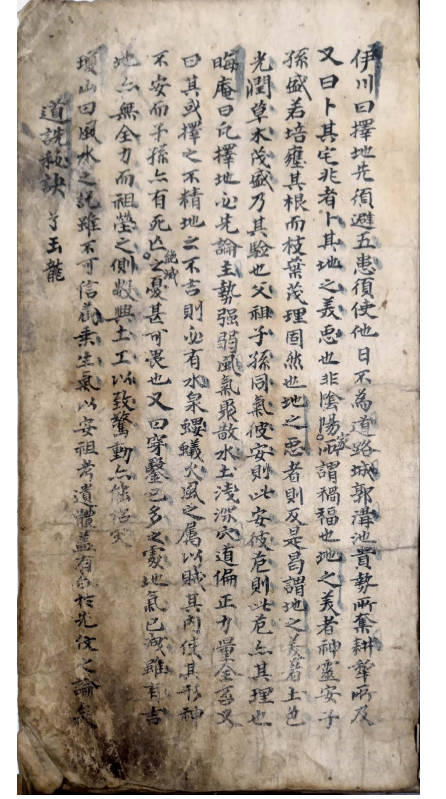 伊川曰擇地先須避五患須使他日不為道路城郭溝池貴勢所棄耕犂所及
又曰卜其宅兆者卜其地之美惡也非陰陽家所謂禍福也地之美者神靈安子
孫盛若培壅其根而枝葉茂理固然也地之惡者則反是曷謂地之美者土色
光潤草木茂盛乃其驗也父祖子孫同氣彼安則此安彼危則此危亦其理也
晦庵曰凡擇地必先論主勢强弱風氣聚散水土淺深穴道偏正力量全否又
曰其或擇之不精地之不吉則必有水泉螻蟻火風之屬以賊其內使其形神
不安而子孫亦有死亡絶滅之憂甚可畏也又曰穿鑿已多之處地氣已洩雖有吉
地亦無全力而祖塋之側數興土工以致驚動亦能
瓊山曰風水之說雖不可信乘生氣以安祖考遺體盖有合於先儒之論
道詵秘訣 玉龍